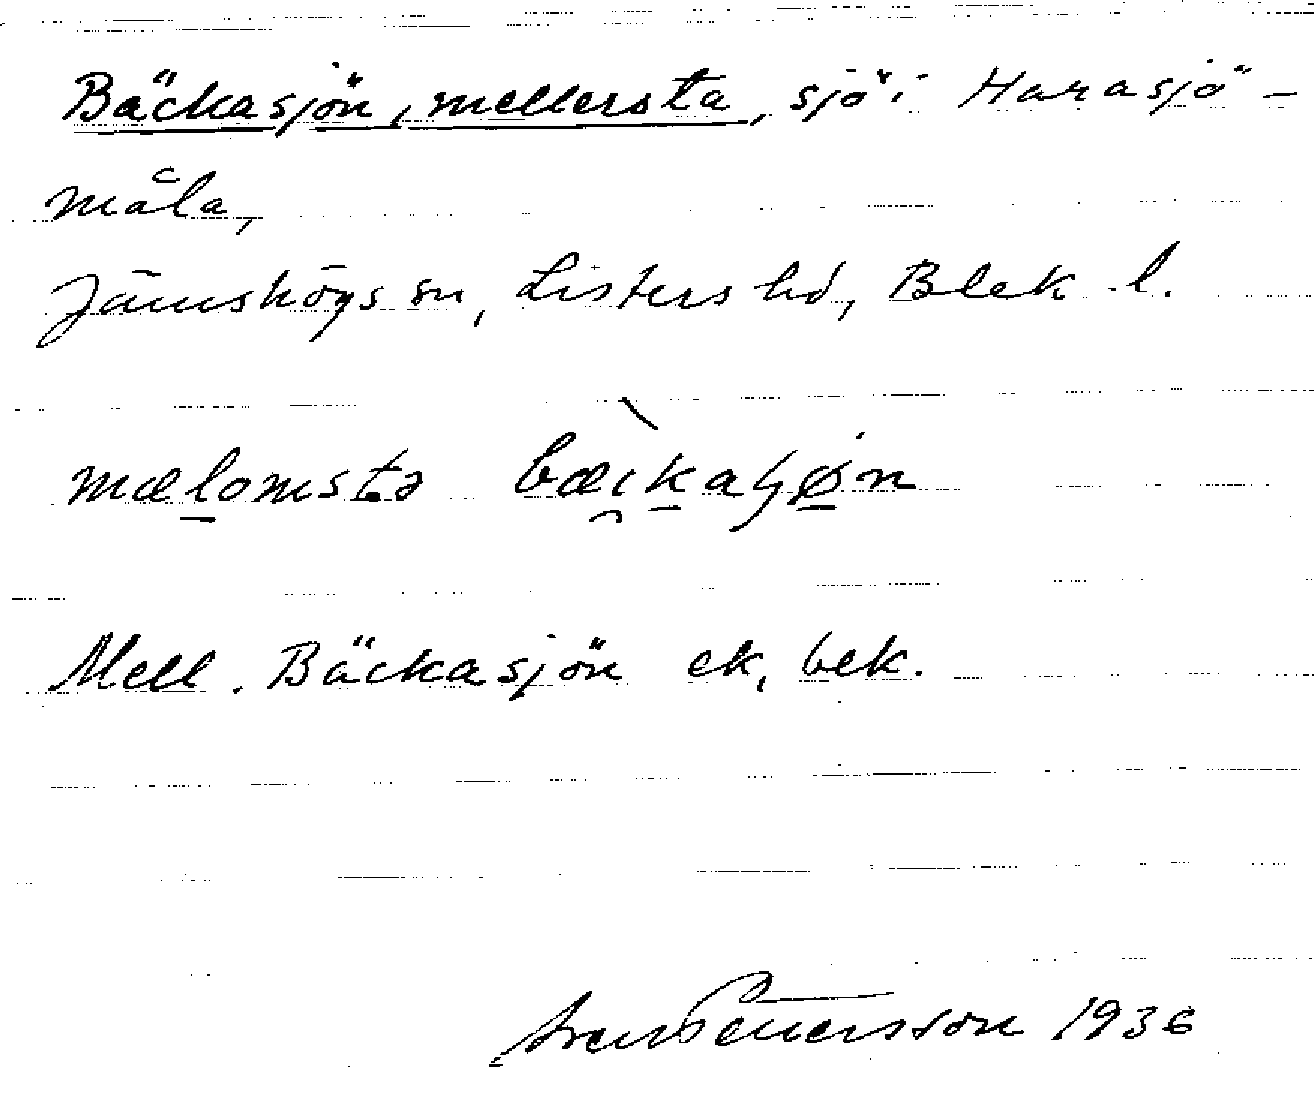 Bäckasjön, mellersta, sjö i Harasjö-
måla,
Jämshögs sn, Listers hd, Blek. l.
mælomsta bæi̯kaɧøn
Mell. Bäckasjön ek, bek.
Sven Pettersson 1936